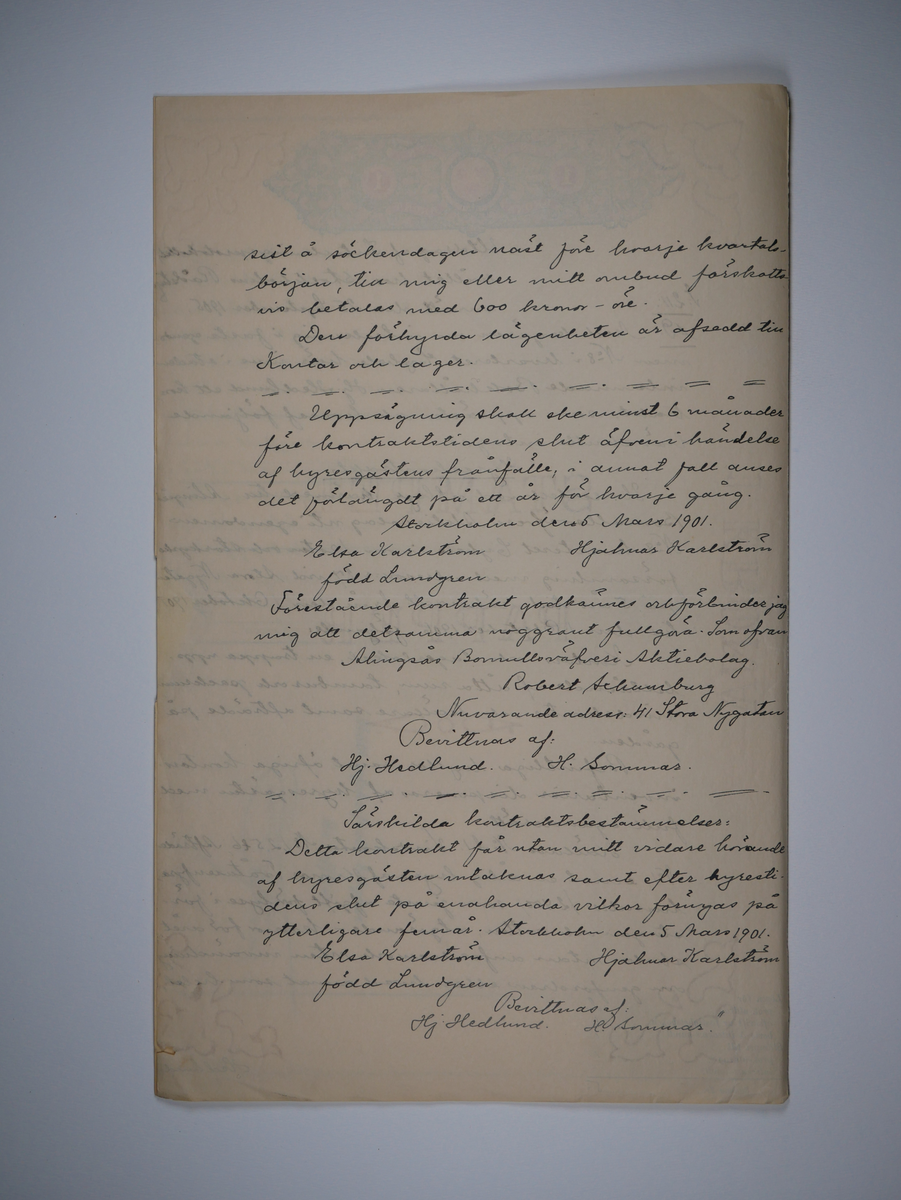 sist å söckendagen näst före hvarje kvartals-
början, till mig eller mitt ombud förskotts-
vis betalas med 600 kronor - öre.
Den förhyrda lägenheten är afsedd till
Kontor och lager.
Uppsägning skall ske minst 6 månader
före kontraktstidens slut äfven i händelse
af hyresgästens frånfälle, i annat fall anses
det förlängdt på ett år för hvarje gång.
Stockholm den 5 Mars 1901.
Elsa Karlström Hjalmar Karlström
född Lundgren
Förestående kontrakt godkännes och förbinder jag
mig att detsamma noggrant fullgöra. Som ofvan
Alingsås Bomullsväfveri Aktiebolag.
Robert Schumburg
Nuvarande adress: 41 Stora Nygatan
Bevittnas af:
Hj. Hedlund. H. Sommar.
Särskilda kontraktsbestämmelser:
Detta kontrakt får utan mitt vidare hörande
af hyresgästen intecknas samt efter hyresti-
dens slut på enahanda vilkor förnyas på
ytterligare fem år. Stockholm den 5 Mars 1901.
Elsa Karlström Hjalmar Karlström
född Lundgren
Bevittnas af:
Hj Hedlund. H. Sommar."